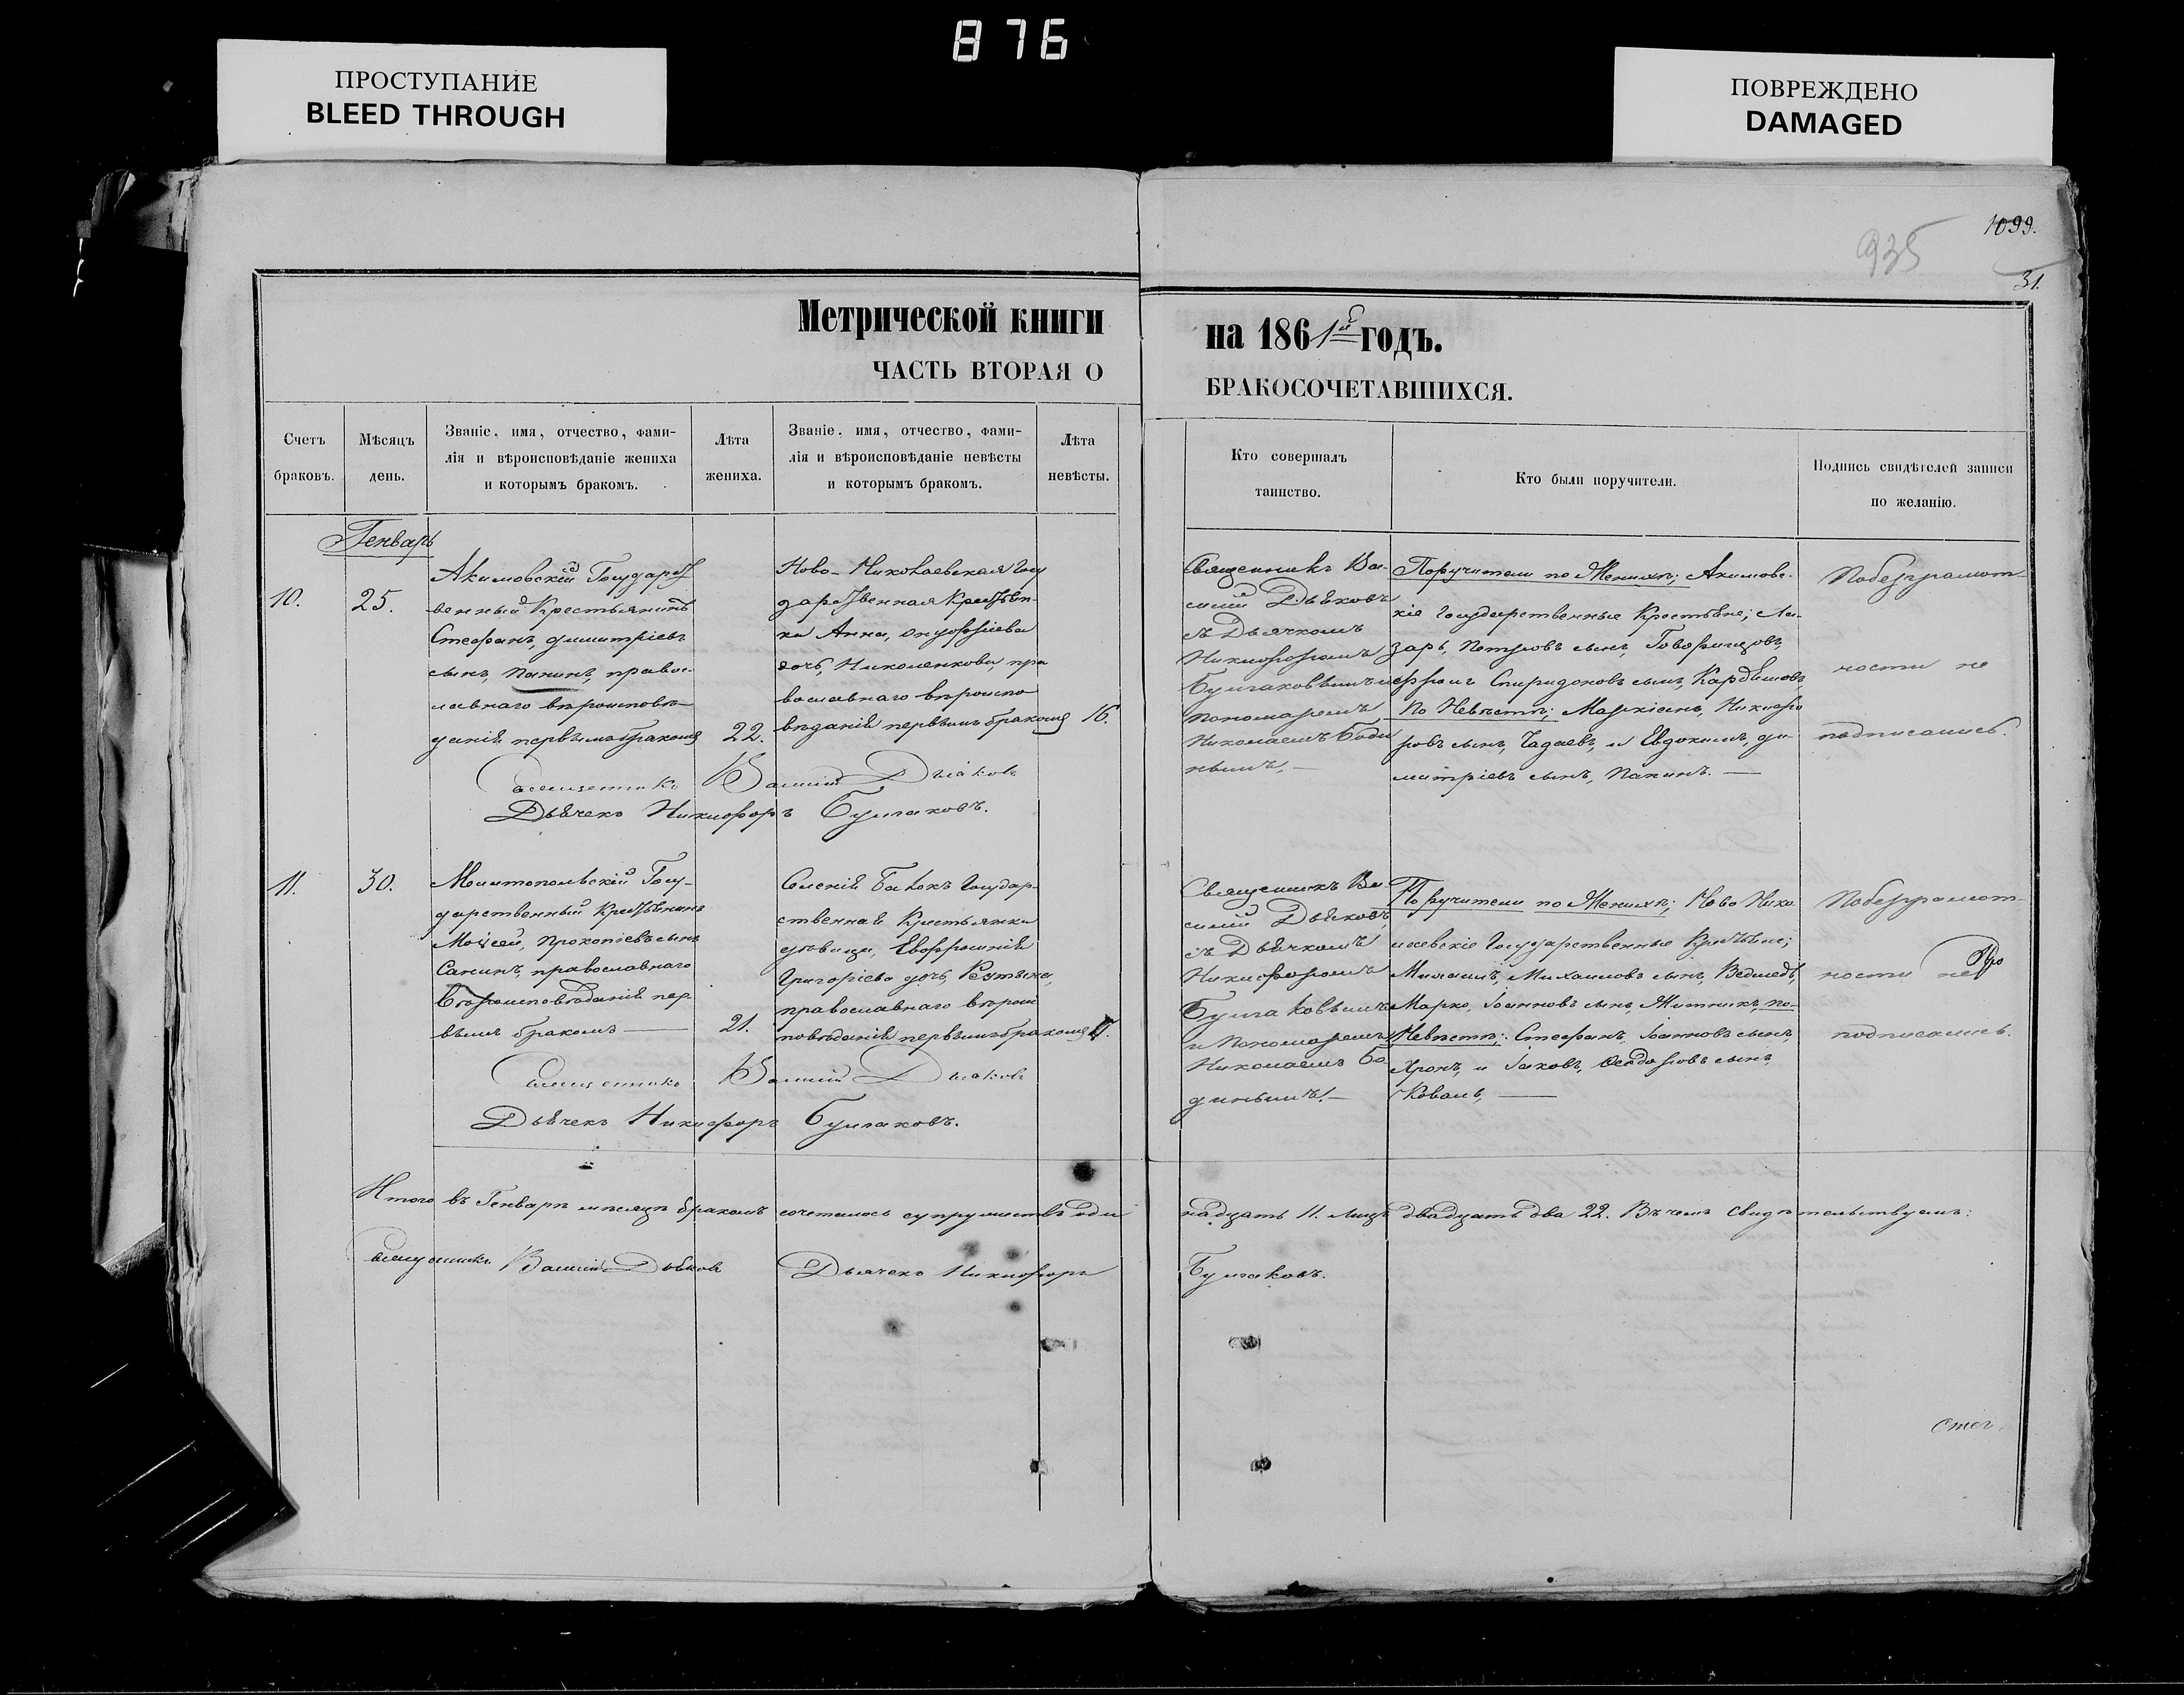 876
ПРОСТУПАНИЕ
BLEED THROUGH
ПОВРЕЖДЕНО
DAMAGED
1099.
935
31.
Метрической книги
на 1861й годъ.
ЧАСТЬ ВТОРАЯ О
БРАКОСОЧЕТАВШИХСЯ.
Счетъ
браковъ.
Мѣсяцъ
день.
Званіе, имя, отчество, фами-
лія и вѣроисповѣданіе жениха
и которымъ бракомъ.
Лѣта
жениха.
Званіе, имя, отчество, фами-
лія и вѣроисповѣданіе невѣсты
и которымъ бракомъ.
Лѣта
невѣсты.
Кто совершалъ
таинство.
Кто были поручители.
Подпись свидѣтелей записи
по желанію.
Генварь
10.
25.
Акимовскій Государст
венный Крестьянинъ
Стефанъ, димитріевъ
сынъ, Панинъ, правос-
лавнаго вѣроисповѣ-
данія первымъ бракомъ
22.
Ново-Николаевская Госу
дарственная Крестьян-
ка Анна, онуфріева
дочь, Николенкова, пра
вославнаго вѣроиспо
вѣданія первымъ бракомъ
16.
Священникъ Ва-
силій Дьяковъ
съ Дьячкомъ
Никифоромъ
Булгаковымъ и
пономаремъ
Николаемъ Боди
нымъ,—
Поручители по Женихѣ; Акимовс-
кіе Государственные Крестьяне; Ла-
зарь, Петровъ сынъ,
Спиридоновъ сынъ,
По Невѣстѣ; Маркіанъ, Никифо
ровъ сынъ, Чадаевъ, и Евдокимъ, ди-
митріевъ сынъ, Панинъ.—
Побезграмот-
ности не
подписались.
Священникъ Василій Дьяковъ
Дьячекъ Никифоръ Булгаковъ.
11.
30.
Мелитопольскій Госу-
дарственный Крестьянинъ
Моисей, Прокопіевъ сынъ
Санинъ, православнаго
Вѣроисповѣданія пер-
вымъ бракомъ —
21.
Селенія Балокъ Государ-
ственная Крестьянка
дѣвица, Евфросинія
Григоріева дочь,
православнаго вѣроис
повѣданія первымъ бракомъ
17.
Священникъ Ва-
силій Дьяковъ,
съ Дьячкомъ
Никифоромъ
Булгаковымъ
и Пономаремъ
Николаемъ Бо-
динымъ.—
Поручители по Женихѣ; Ново Нико
лаевскіе Государственные Крестьяне;
Михаилъ, Михаиловъ сынъ, Ведмедь,
Марко, Іоанновъ сынъ, Житникъ, по-
Невѣстѣ; Стефанъ, Іоанновъ сынъ,
Хронъ, и Іаковъ, Ѳеодоровъ сынъ,
Коваль, —
Побезграмот-
ности не
подписались.
Священникъ Василій Дьяковъ
Дьячекъ Никифоръ Булгаковъ.
Итого въ Генварѣ мѣсяцѣ бракомъ сочеталось супружествъ оди
надцать 11. лицъ двадцать два 22. Въ чемъ свидѣтельствуемъ:
Священникъ Василій Дьяковъ Дьячекъ Никифоръ
Булгаковъ.